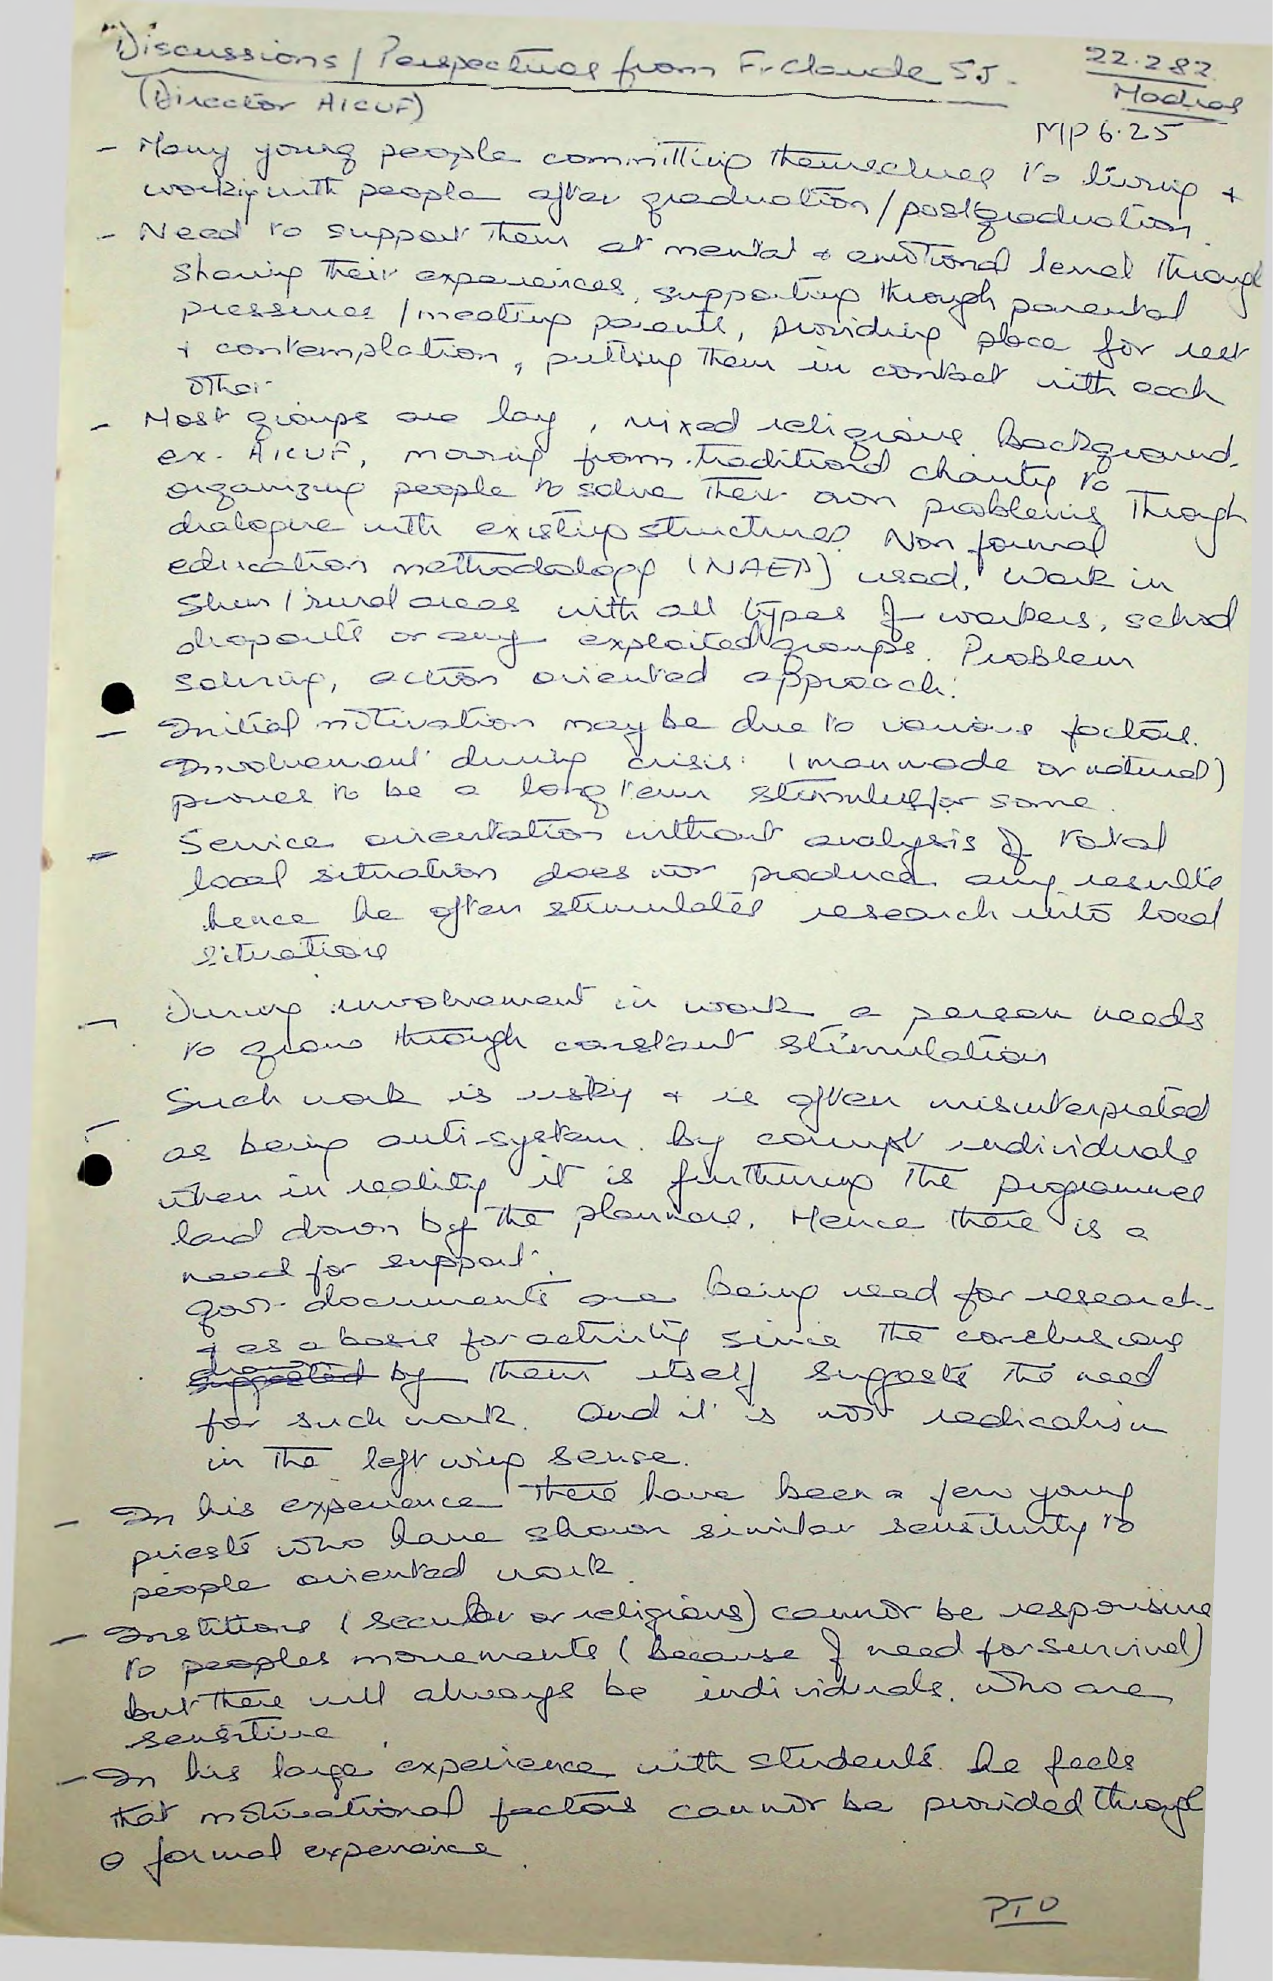 Discussions / Perspectives from Fr Claude S.J.
22.2.82
(Director AICUF)
Madras
MP 6.25
- Many young people committing themselves to living +
working with people after graduation/postgraduation.
- Need to support them at mental + emotional level through
sharing their experiences, supporting through parental
pressures / meeting parents, providing place for rest
+ contemplation, putting them in contact with each
other
- Most groups are lay, mixed religious background.
ex. AICUF, moving from traditional charity to
organizing people to solve their own problems through
dialogue with existing structures. Non formal
education methodology (NAEP) used. Work in
slum/rural areas with all types of workers, school
dropouts or any exploited groups. Problem
solving, action oriented approach.
- Initial motivation may be due to various factors.
Involvement during crisis (manmade or natural)
proves to be a long term stimulus for some.
- Service orientation without analysis of total
local situation does not produce any results
hence he often stimulates research into local
situations
- During involvement in work a person needs
to grow through constant stimulation
- Such work is risky + is often misinterpreted
as being anti-system by corrupt individuals
when in reality it is furthering the programmes
laid down by the planners. Hence there is a
need for support.
gov. documents are being used for research
+ as a basis for activity since the conclusions
drawn suggested by them itself suggests the need
for such work. And it is not radicalism
in the left wing sense.
- In his experience there have been a few young
priests who have shown similar sensitivity to
people oriented work.
- Institutions (secular or religious) cannot be responsive
to peoples movements (because of need for survival)
but there will always be individuals who are
sensitive.
- In his large experience with students he feels
that motivational factors cannot be provided through
a formal experience.
PTO